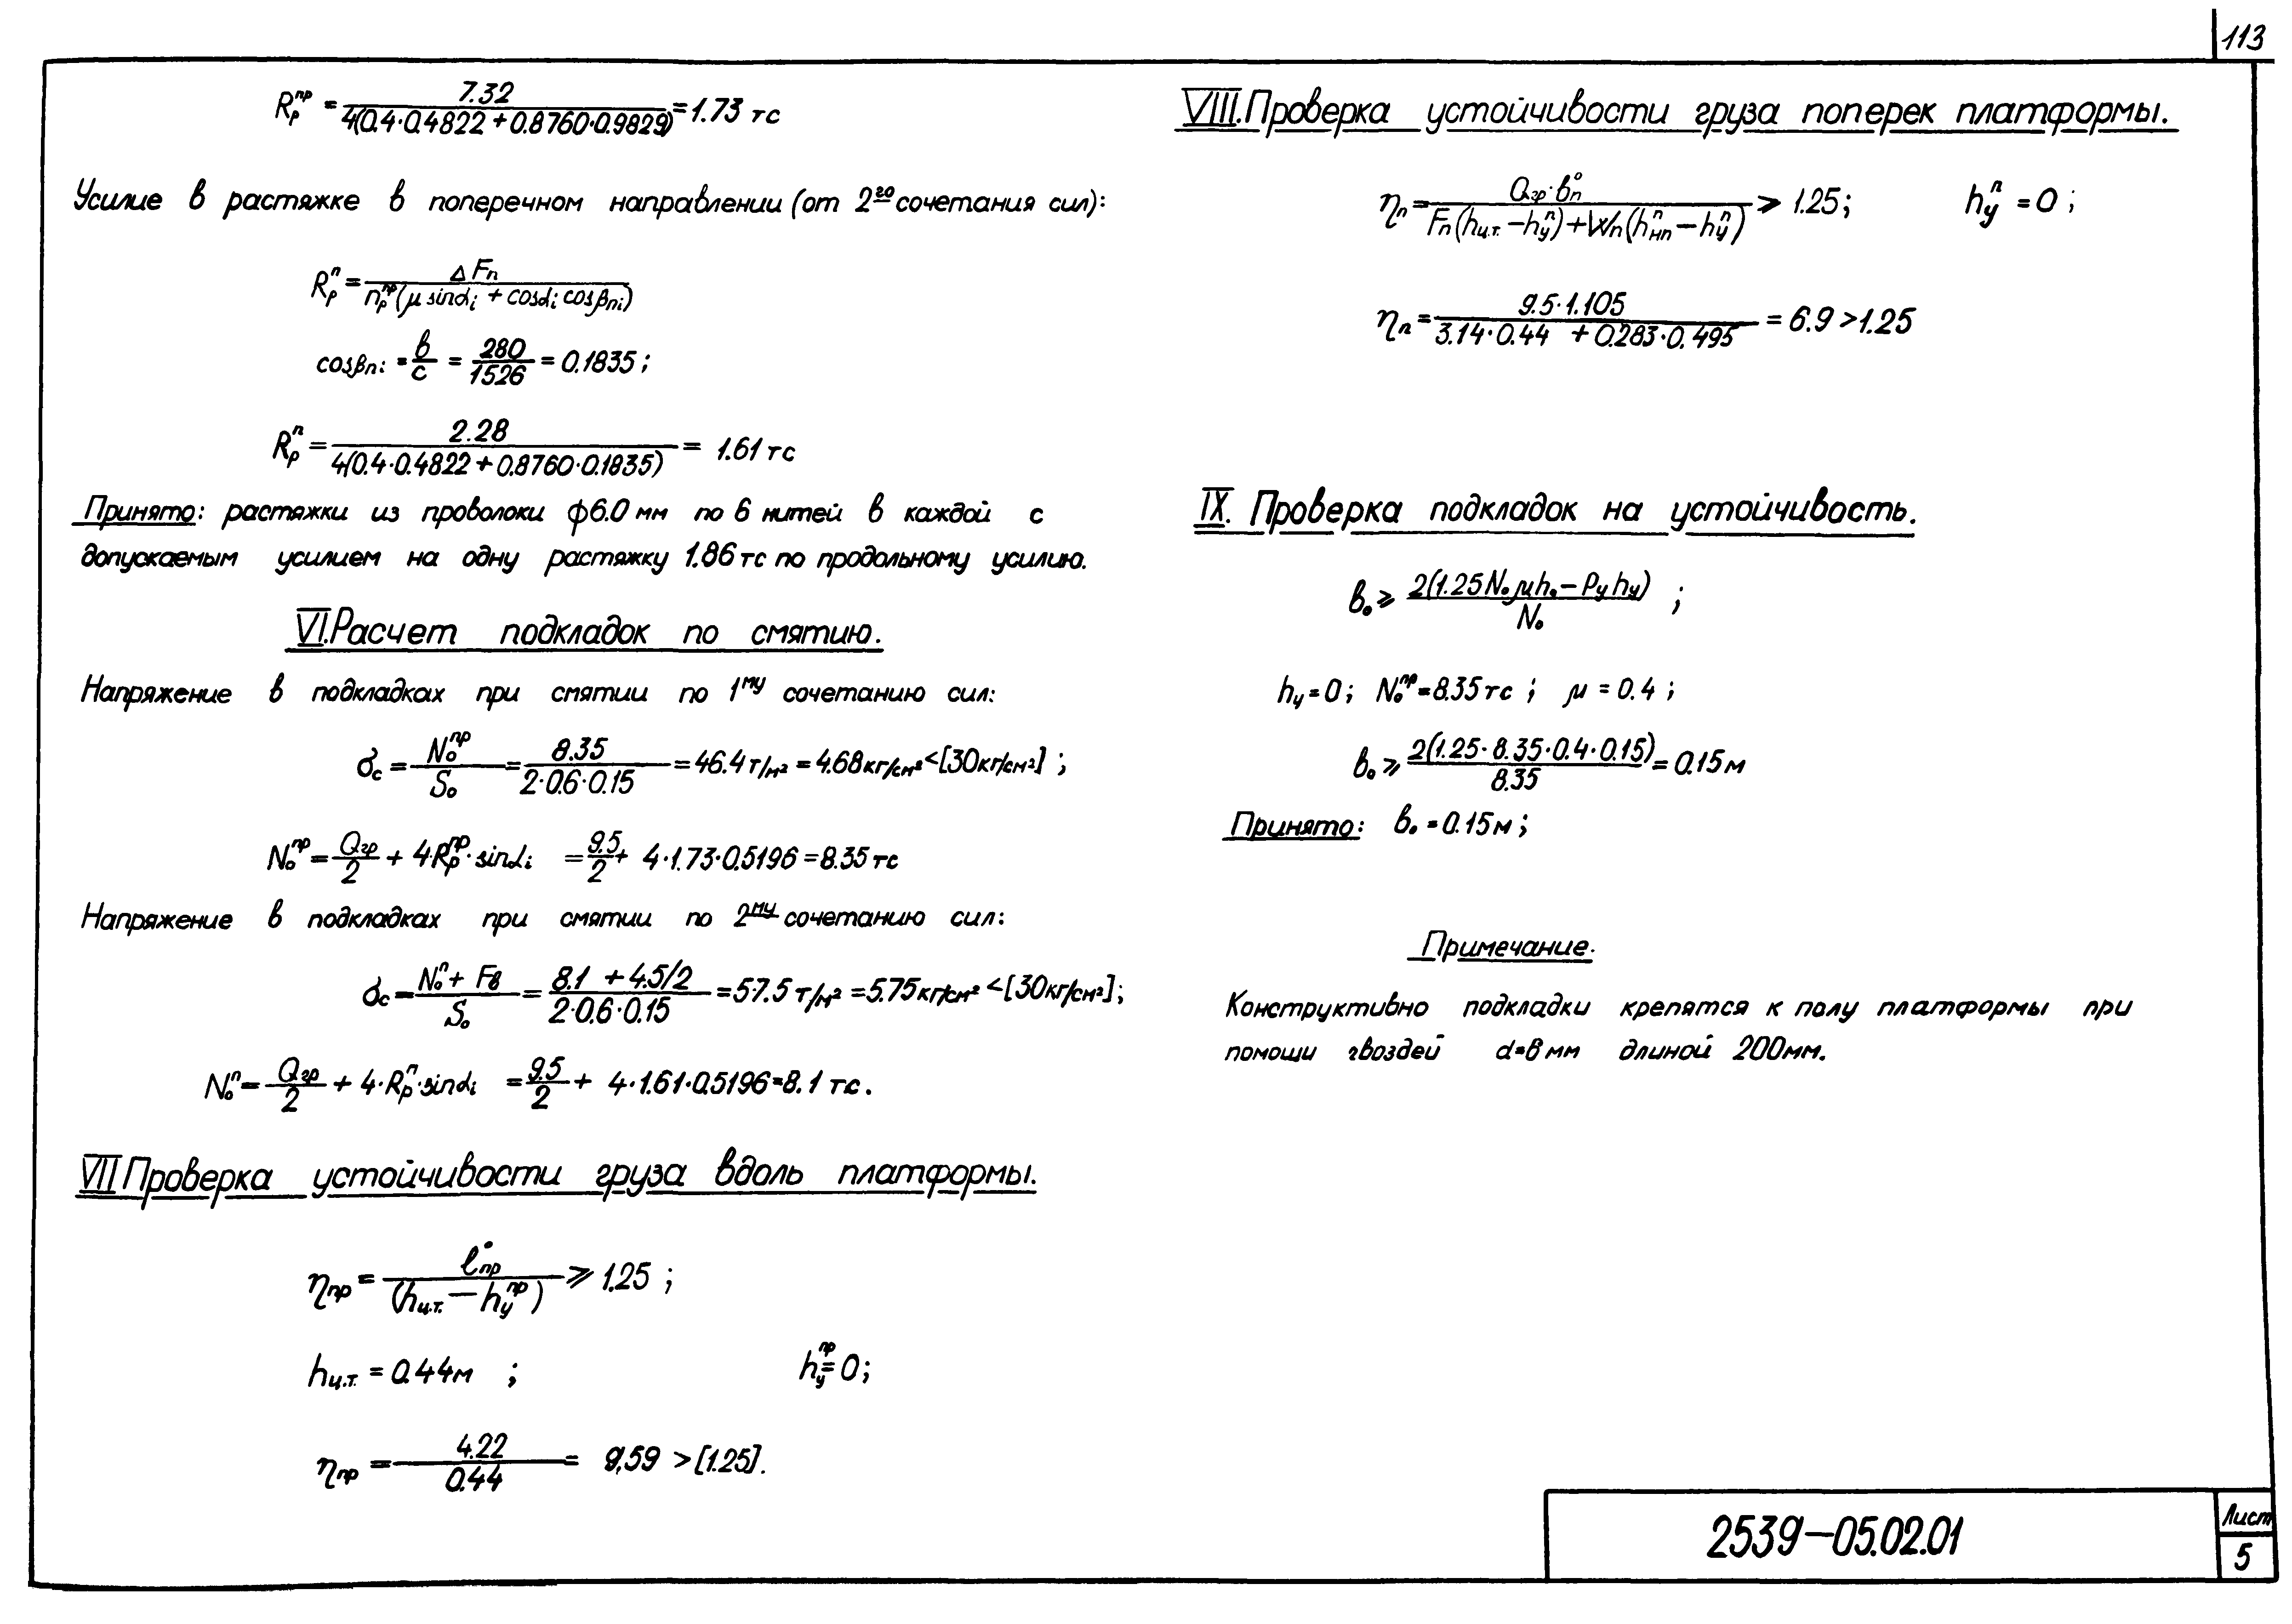 113
R_р^пр = 7.32 / 4(0.4·0.4822 + 0.8760·0.9829) = 1.73 тс
Усилие в растяжке в поперечном направлении (от 2го сочетания сил):
R_р^п = ΔFп / n_р^пр (μ sinαi + cosαi cosβпi)
cosβпi = в/с = 280/1526 = 0.1835;
R_р^п = 2.28 / 4(0.4·0.4822 + 0.8760·0.1835) = 1.61 тс
Принято: растяжки из проволоки ф6.0 мм по 6 нитей в каждой с
допускаемым усилием на одну растяжку 1.86 тс по продольному усилию.
VI. Расчет подкладок по смятию.
Напряжение в подкладках при смятии по 1му сочетанию сил:
σс = N_о^пр / Sо = 8.35 / 2·0.6·0.15 = 46.4 т/м² = 4.68 кг/см² < [30 кг/см²];
N_о^пр = Qгр/2 + 4·R_р^пр·sinαi = 9.5/2 + 4·1.73·0.5196 = 8.35 тс
Напряжение в подкладках при смятии по 2му сочетанию сил:
σс = N_о^п + Fв / Sо = 8.1 + 4.5/2 / 2·0.6·0.15 = 57.5 т/м² = 5.75 кг/см² < [30 кг/см²];
N_о^п = Qгр/2 + 4·R_р^п·sinαi = 9.5/2 + 4·1.61·0.5196 = 8.1 тс.
VII Проверка устойчивости груза вдоль платформы.
ηпр = l°пр / (hц.т. − h_у^пр) ⩾ 1.25;
hц.т. = 0.44 м; h_у^пр = 0;
ηпр = 4.22 / 0.44 = 9,59 > [1.25].
VIII. Проверка устойчивости груза поперек платформы.
ηп = Qгр·в°п / Fп(hц.т. − h_у^п) + Wп(h_нп^п − h_у^п) ⩾ 1.25; h_у^п = 0;
ηп = 9.5·1.105 / 3.14·0.44 + 0.283·0.495 = 6.9 > 1.25
IX. Проверка подкладок на устойчивость.
во ⩾ 2(1.25 Nо μ hо − Ру hу) / Nо ;
hу = 0; N_о^пр = 8.35 тс; μ = 0.4;
во ⩾ 2(1.25·8.35·0.4·0.15) / 8.35 = 0.15 м
Принято: во = 0.15 м;
Примечание.
Конструктивно подкладки крепятся к полу платформы при
помощи гвоздей d=8 мм длиной 200 мм.
2539−05.02.01
Лист
5